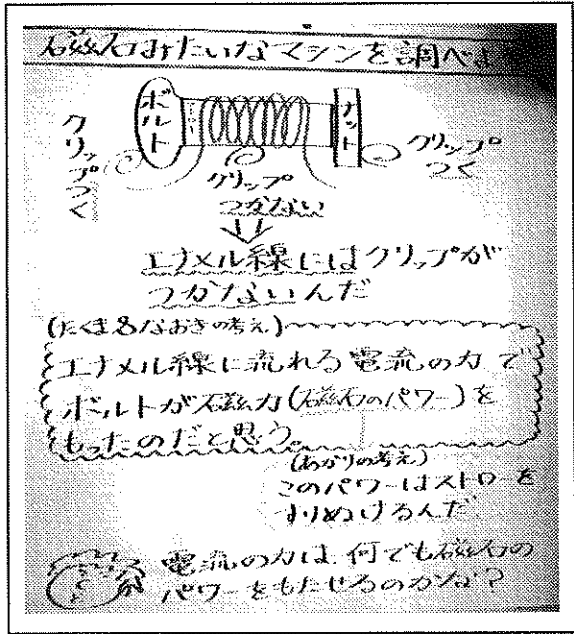 磁石みたいなマシンを調べよ
ボルト
ナット
クリップつく
クリップ
つかない
クリップつく
エナメル線にはクリップが
つかないんだ
(たくま&なおきの考え)
エナメル線に流れる電流の力で
ボルトが磁力(磁石のパワー)を
もったのだと思う。
(あかりの考え)
このパワーはストローを
すりぬけるんだ
電流の力は何でも磁石の
パワーをもたせるのかな?